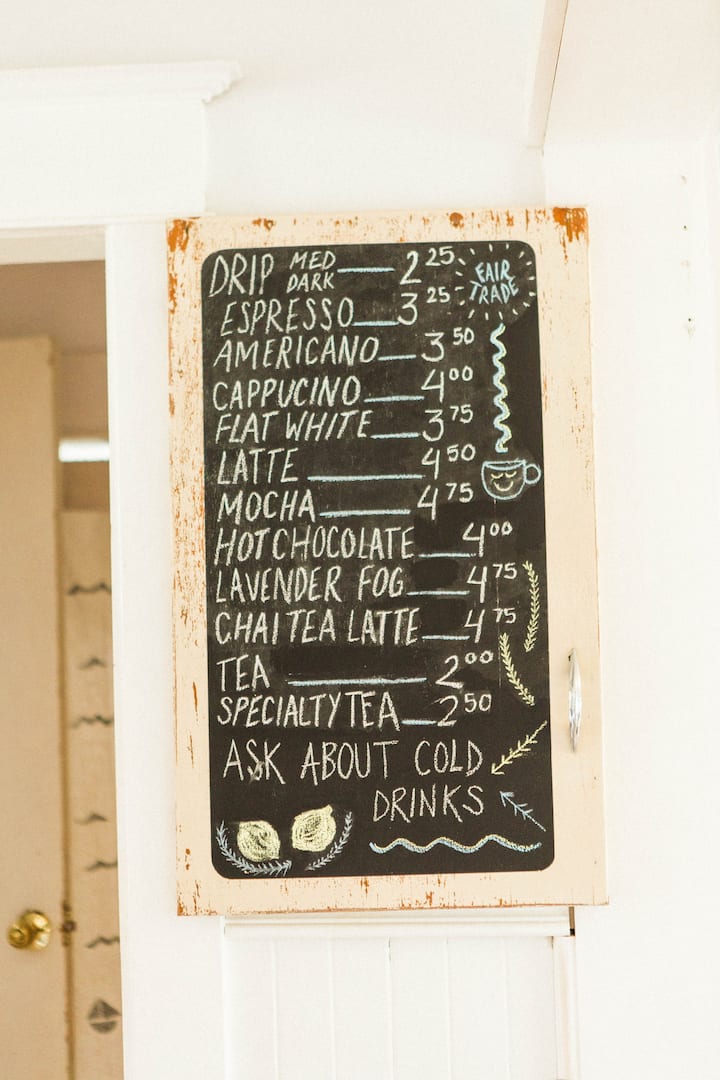 DRIP MED DARK 2 25
FAIR TRADE
ESPRESSO 3 25
AMERICANO 3 50
CAPPUCINO 4 00
FLAT WHITE 3 75
LATTE 4 50
MOCHA 4 75
HOT CHOCOLATE 4 00
LAVENDER FOG 4 75
CHAI TEA LATTE 4 75
TEA 2 00
SPECIALTY TEA 2 50
ASK ABOUT COLD
DRINKS